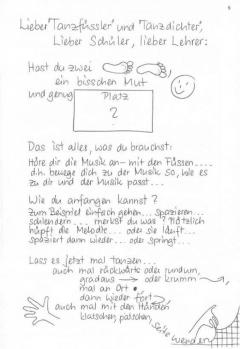 6
Lieber 'Tanzfüssler' und 'Tanzdichter',
Lieber Schüler, lieber Lehrer:
Hast du zwei
ein bisschen Mut
und genug
Platz
?
Das ist alles, was du brauchst:
Höre dir die Musik an - mit den Füssen....
d.h. bewege dich zu der Musik so, wie es
zu dir und der Musik passt...
Wie du anfangen kannst?
Zum Beispiel einfach gehen... spazieren...
schlendern... merkst du was? Plötzlich
hüpft die Melodie... oder sie läuft...
spaziert dann wieder... oder springt...
Lass es jetzt mal tanzen...
auch mal rückwärts oder rundum,
gradaus → oder krumm
mal an Ort •
dann wieder fort
auch mal mit den Händen
klatschen, patschen,
Seite wenden